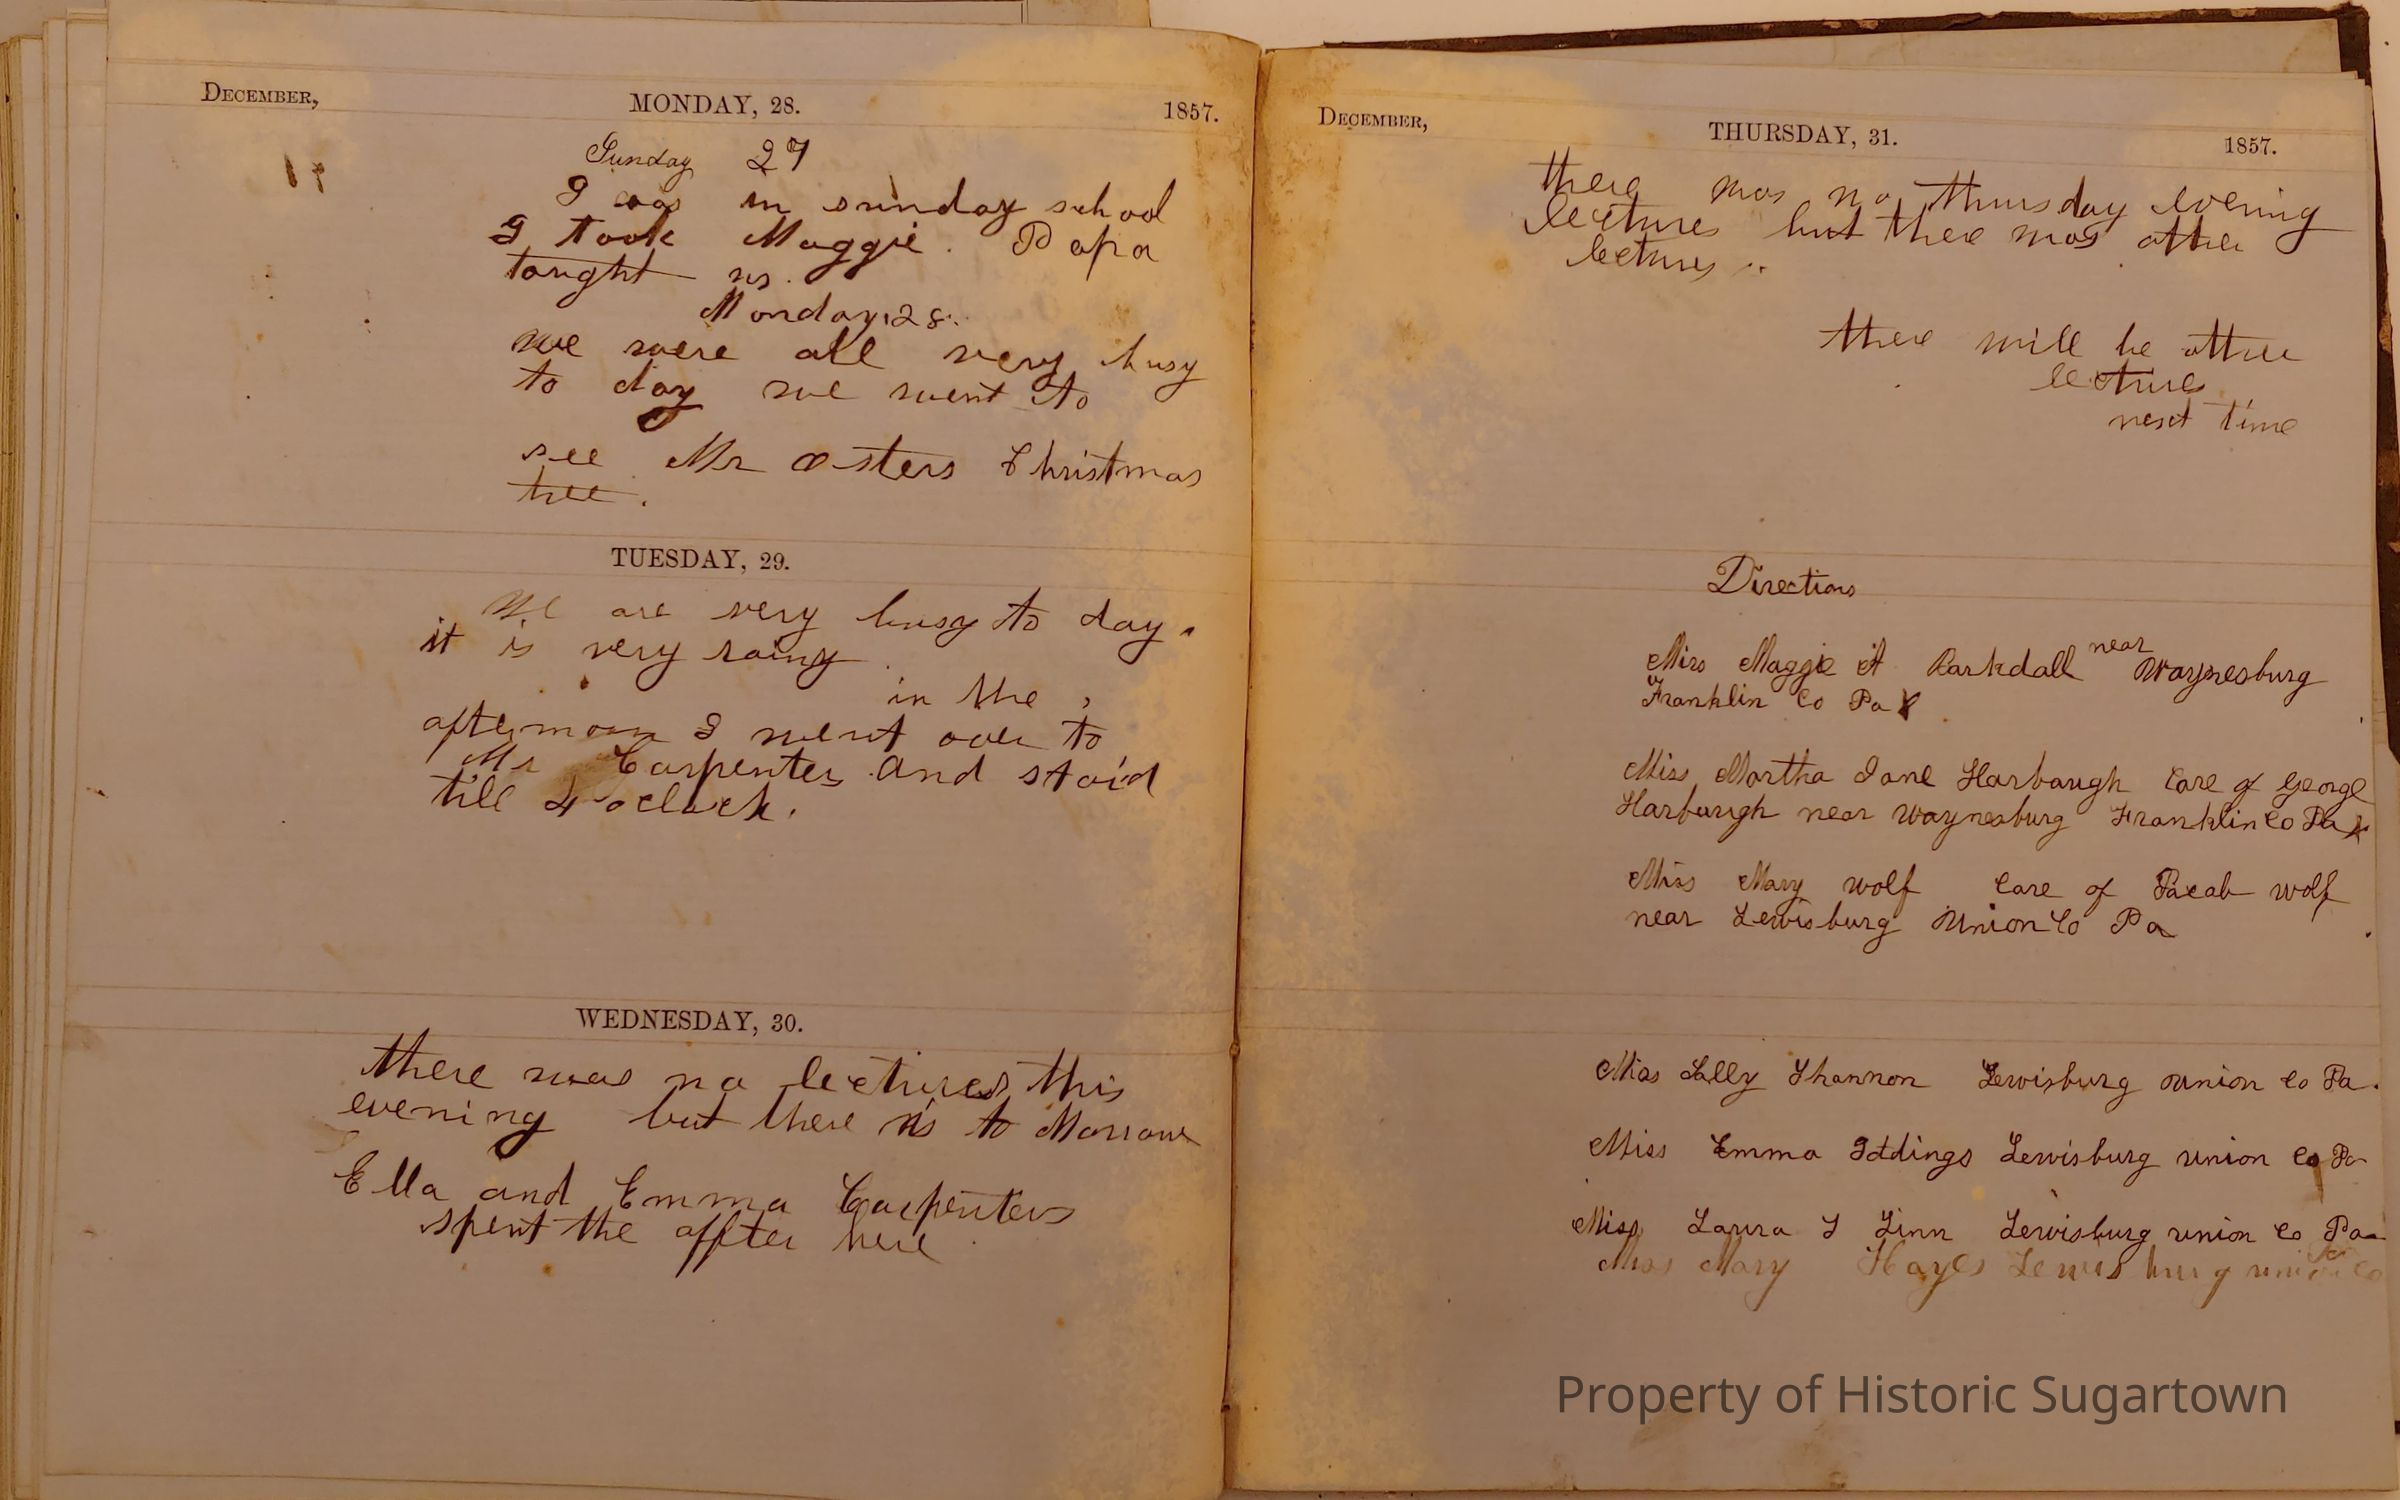 December,
MONDAY, 28.
1857.
Sunday 27
I was in sunday school
I took Maggie. Papa
taught us.
Monday, 28.
We were all very busy
to day we went to
see Mr Osters Christmas
tree.
TUESDAY, 29.
We are very busy to day.
it is very rainy.
in the
afternoon I went over to
Mr Carpenters and staid
till 4 oclock.
WEDNESDAY, 30.
there was no lectures this
evening but there is to Morrow
Ella and Emma Carpenters
spent the affter here
December,
THURSDAY, 31.
1857.
there was no thursday evening
lectures but there was other
lectures
there will be other
lectures
next time
Directions
Miss Maggie A Barkdall near Waynesburg
Franklin Co Pa
Miss Martha Jane Harbaugh Care of George
Harbaugh near Waynesburg Franklin Co Pa
Miss Mary Wolf Care of Jacob Wolf
near Lewisburg Union Co Pa
Miss Sally Shannon Lewisburg Union Co Pa.
Miss Emma Iddings Lewisburg Union Co Pa
Miss Laura S Linn Lewisburg Union Co Pa
Miss Mary Hayes Lewisburg union Co
Property of Historic Sugartown